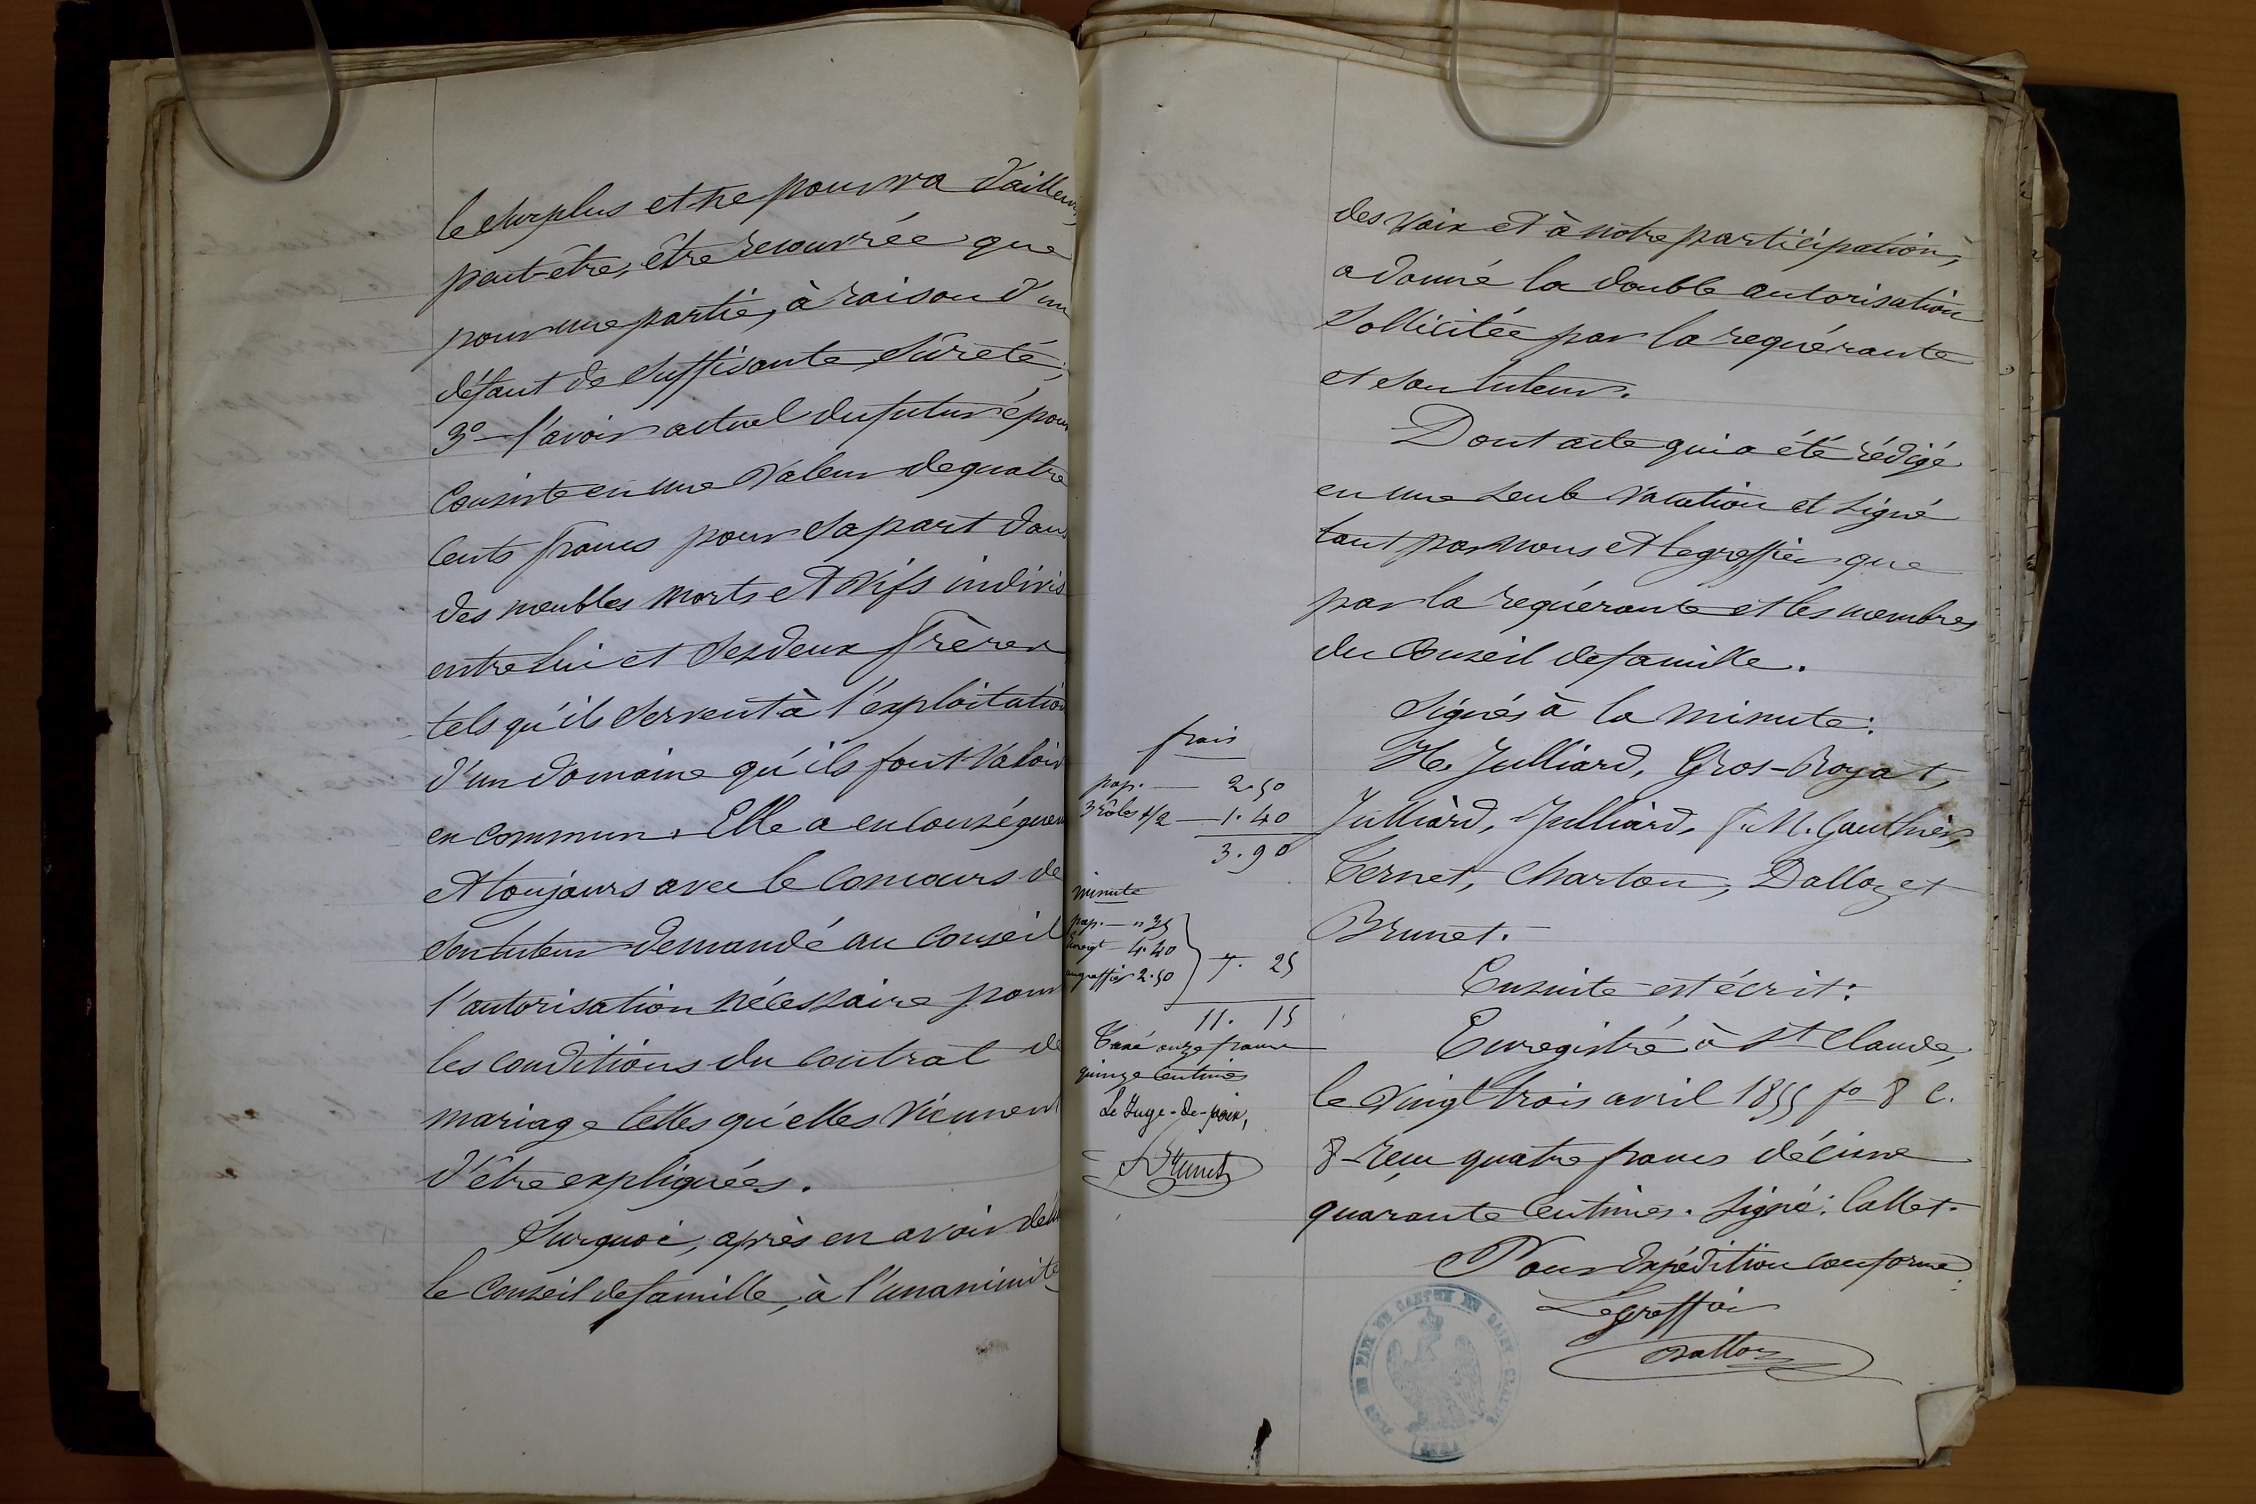 le surplus et ne pourra d'ailleurs,
peut-être, être recouvrée que
pour une partie, à raison d'un
défaut de suffisante sûreté;
3º - l'avoir actuel du futur époux
consiste en une valeur de quatre
cents francs pour sa part dans
des meubles morts et vifs indivis
entre lui et ses deux frères
tels qu'ils servent à l'exploitation
d'un domaine qu'ils font valoir
en commun. Elle a en conséquen
et toujours avec le concours de
son tuteur demandé au conseil
l'autorisation nécessaire pour
les conditions du contrat de
mariage telles qu'elles viennent
d'être expliquées.
Surquoi, après en avoir déli
le conseil de famille, à l'unanimité
des voix et à notre participation,
a donné la double autorisation
sollicitée par la requérante
et son tuteur.
Dont acte qui a été rédigé
en une seule vacation et signé
tant par nous et le greffier que
par la requérante et les membres
du conseil de famille.
Signés à la minute:
H. Julliard, Gros-Royat,
Julliard, Julliard, J. M. Gauthier,
Ternet, Charton, Dalloz et
Brunet.
Ensuite est écrit:
Enregistré à St Claude,
le vingt trois avril 1855 fº 8 c.
8 - reçu quatre francs décime
quarante centimes. Signé: Callet.
Pour expédition conforme:
Le greffier
Dalloz
frais
pap. — 2.50
3 rôles 1/2 — 1.40
3.90
minute
pap. — " 35
Enregt 4.40
au greffier 2.50
7. 25
11. 15
Taxé onze francs
quinze centimes
Le Juge-de-paix,
Brunet
JUGE DE PAIX DU CANTON DE SAINT-CLAUDE
(JURA)